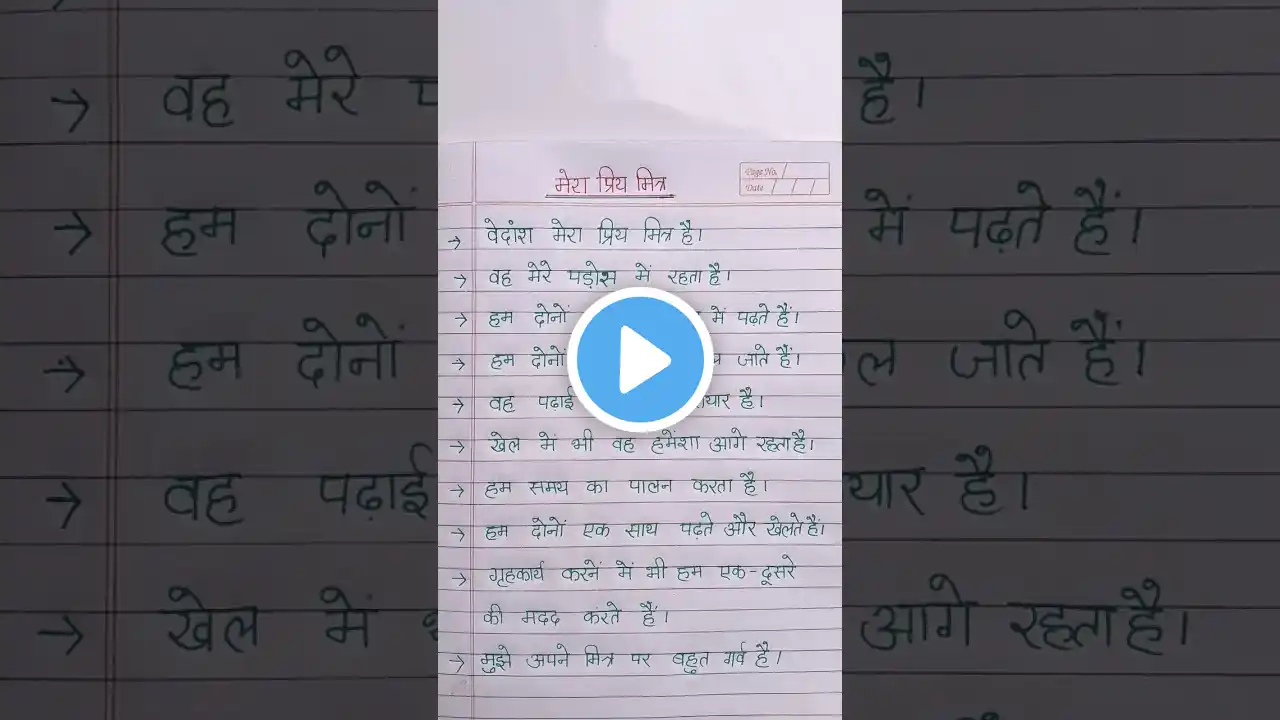 मेरा प्रिय मित्र
Page No.
Date
→ वेदांश मेरा प्रिय मित्र है।
→ वह मेरे पड़ोस में रहता है।
→ हम दोनों में पढ़ते हैं।
→ हम दोनों जाते हैं।
→ वह पढ़ाई है।
→ खेल में भी वह हमेंशा आगे रहता है।
→ हम समय का पालन करता है।
→ हम दोनों एक साथ पढ़ते और खेलते हैं।
→ गृहकार्य करनें में भी हम एक-दूसरे
की मदद करते हैं।
→ मुझे अपने मित्र पर बहुत गर्व है।